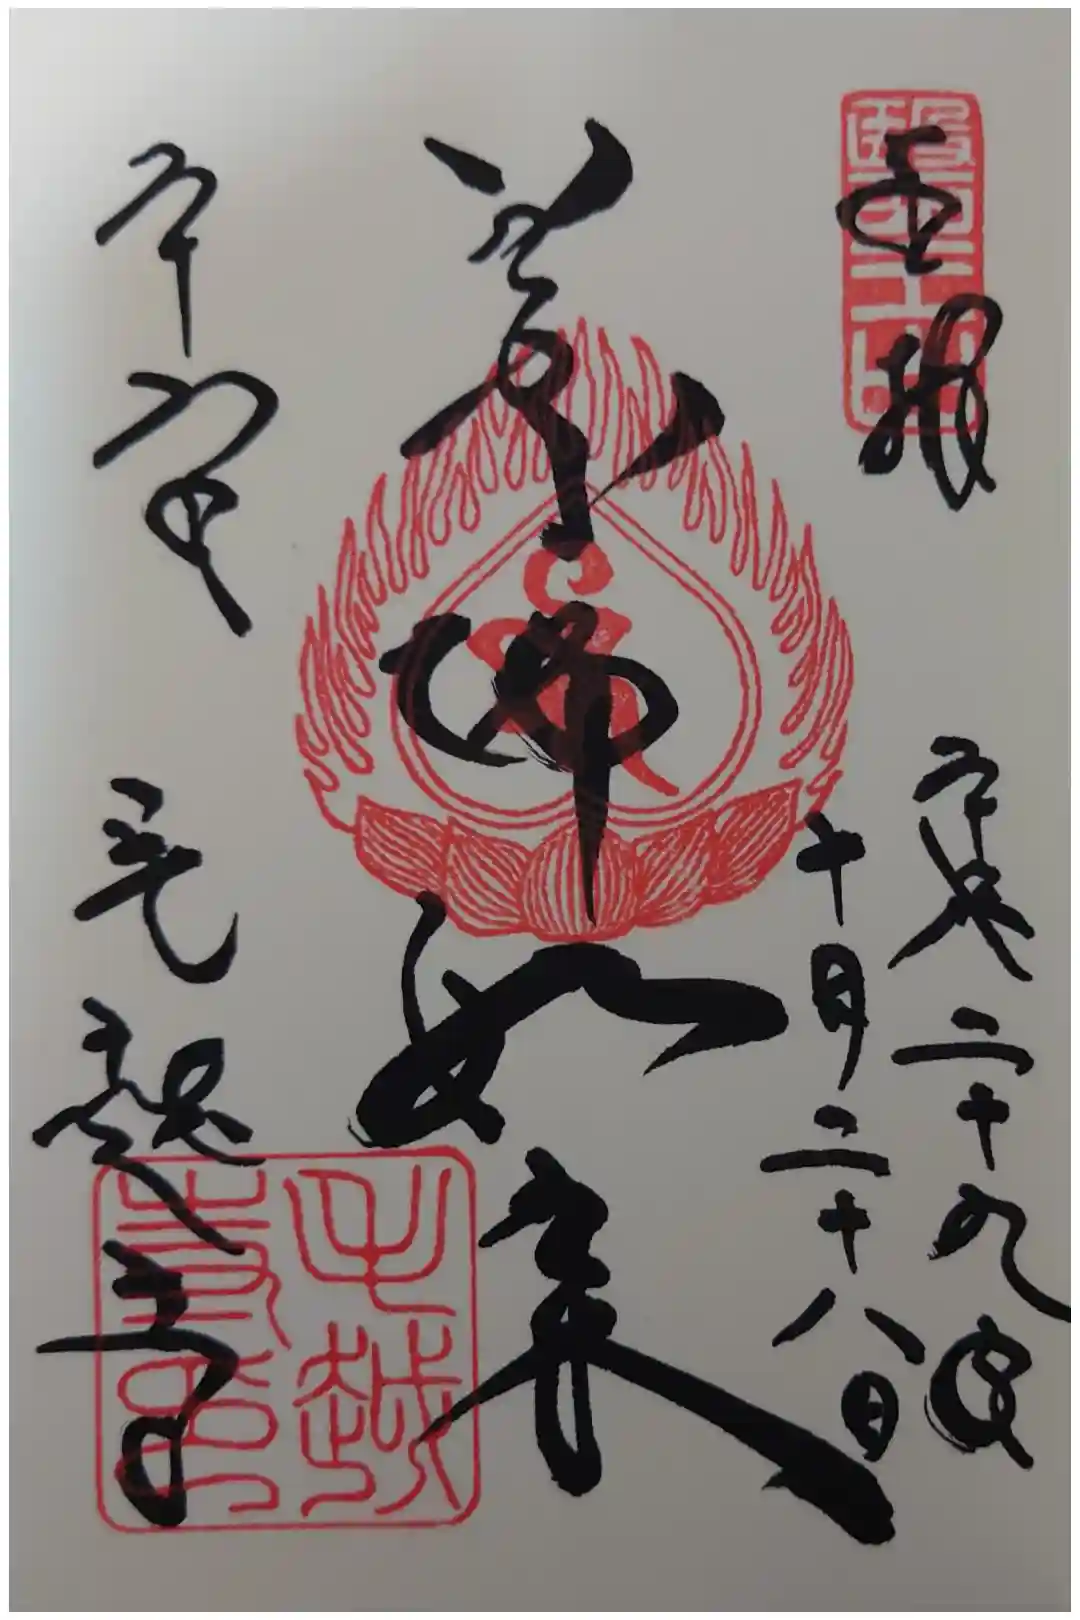 奉拝
平成二十九
十月二十八日
薬師如来
本堂
毛越寺
醫王山
毛越寺印